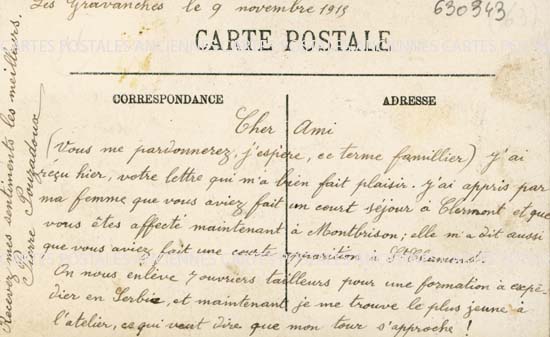 Les Gravanches le 9 novembre 1915
630343
CARTE POSTALE
CARTES POSTALES ANCIENNES CARTES POSTALES ANCIENNES
CORRESPONDANCE
ADRESSE
Cher Ami
(Vous me pardonnerez, j'espère, ce terme famillier) J'ai
reçu hier, votre lettre qui m'a bien fait plaisir. J'ai appris par
ma femme que vous aviez fait un court séjour à Clermont et que
vous êtes affecté maintenant à Montbrison; elle m'a dit aussi
que vous aviez fait une courte apparition à
On nous enlève 7 ouvriers tailleurs pour une formation à expé-
dier en Serbie, et maintenant je me trouve le plus jeune à
l'atelier, ce qui veut dire que mon tour s'approche!
Recevez mes sentiments les meilleurs.
Pierre Pouzadoux